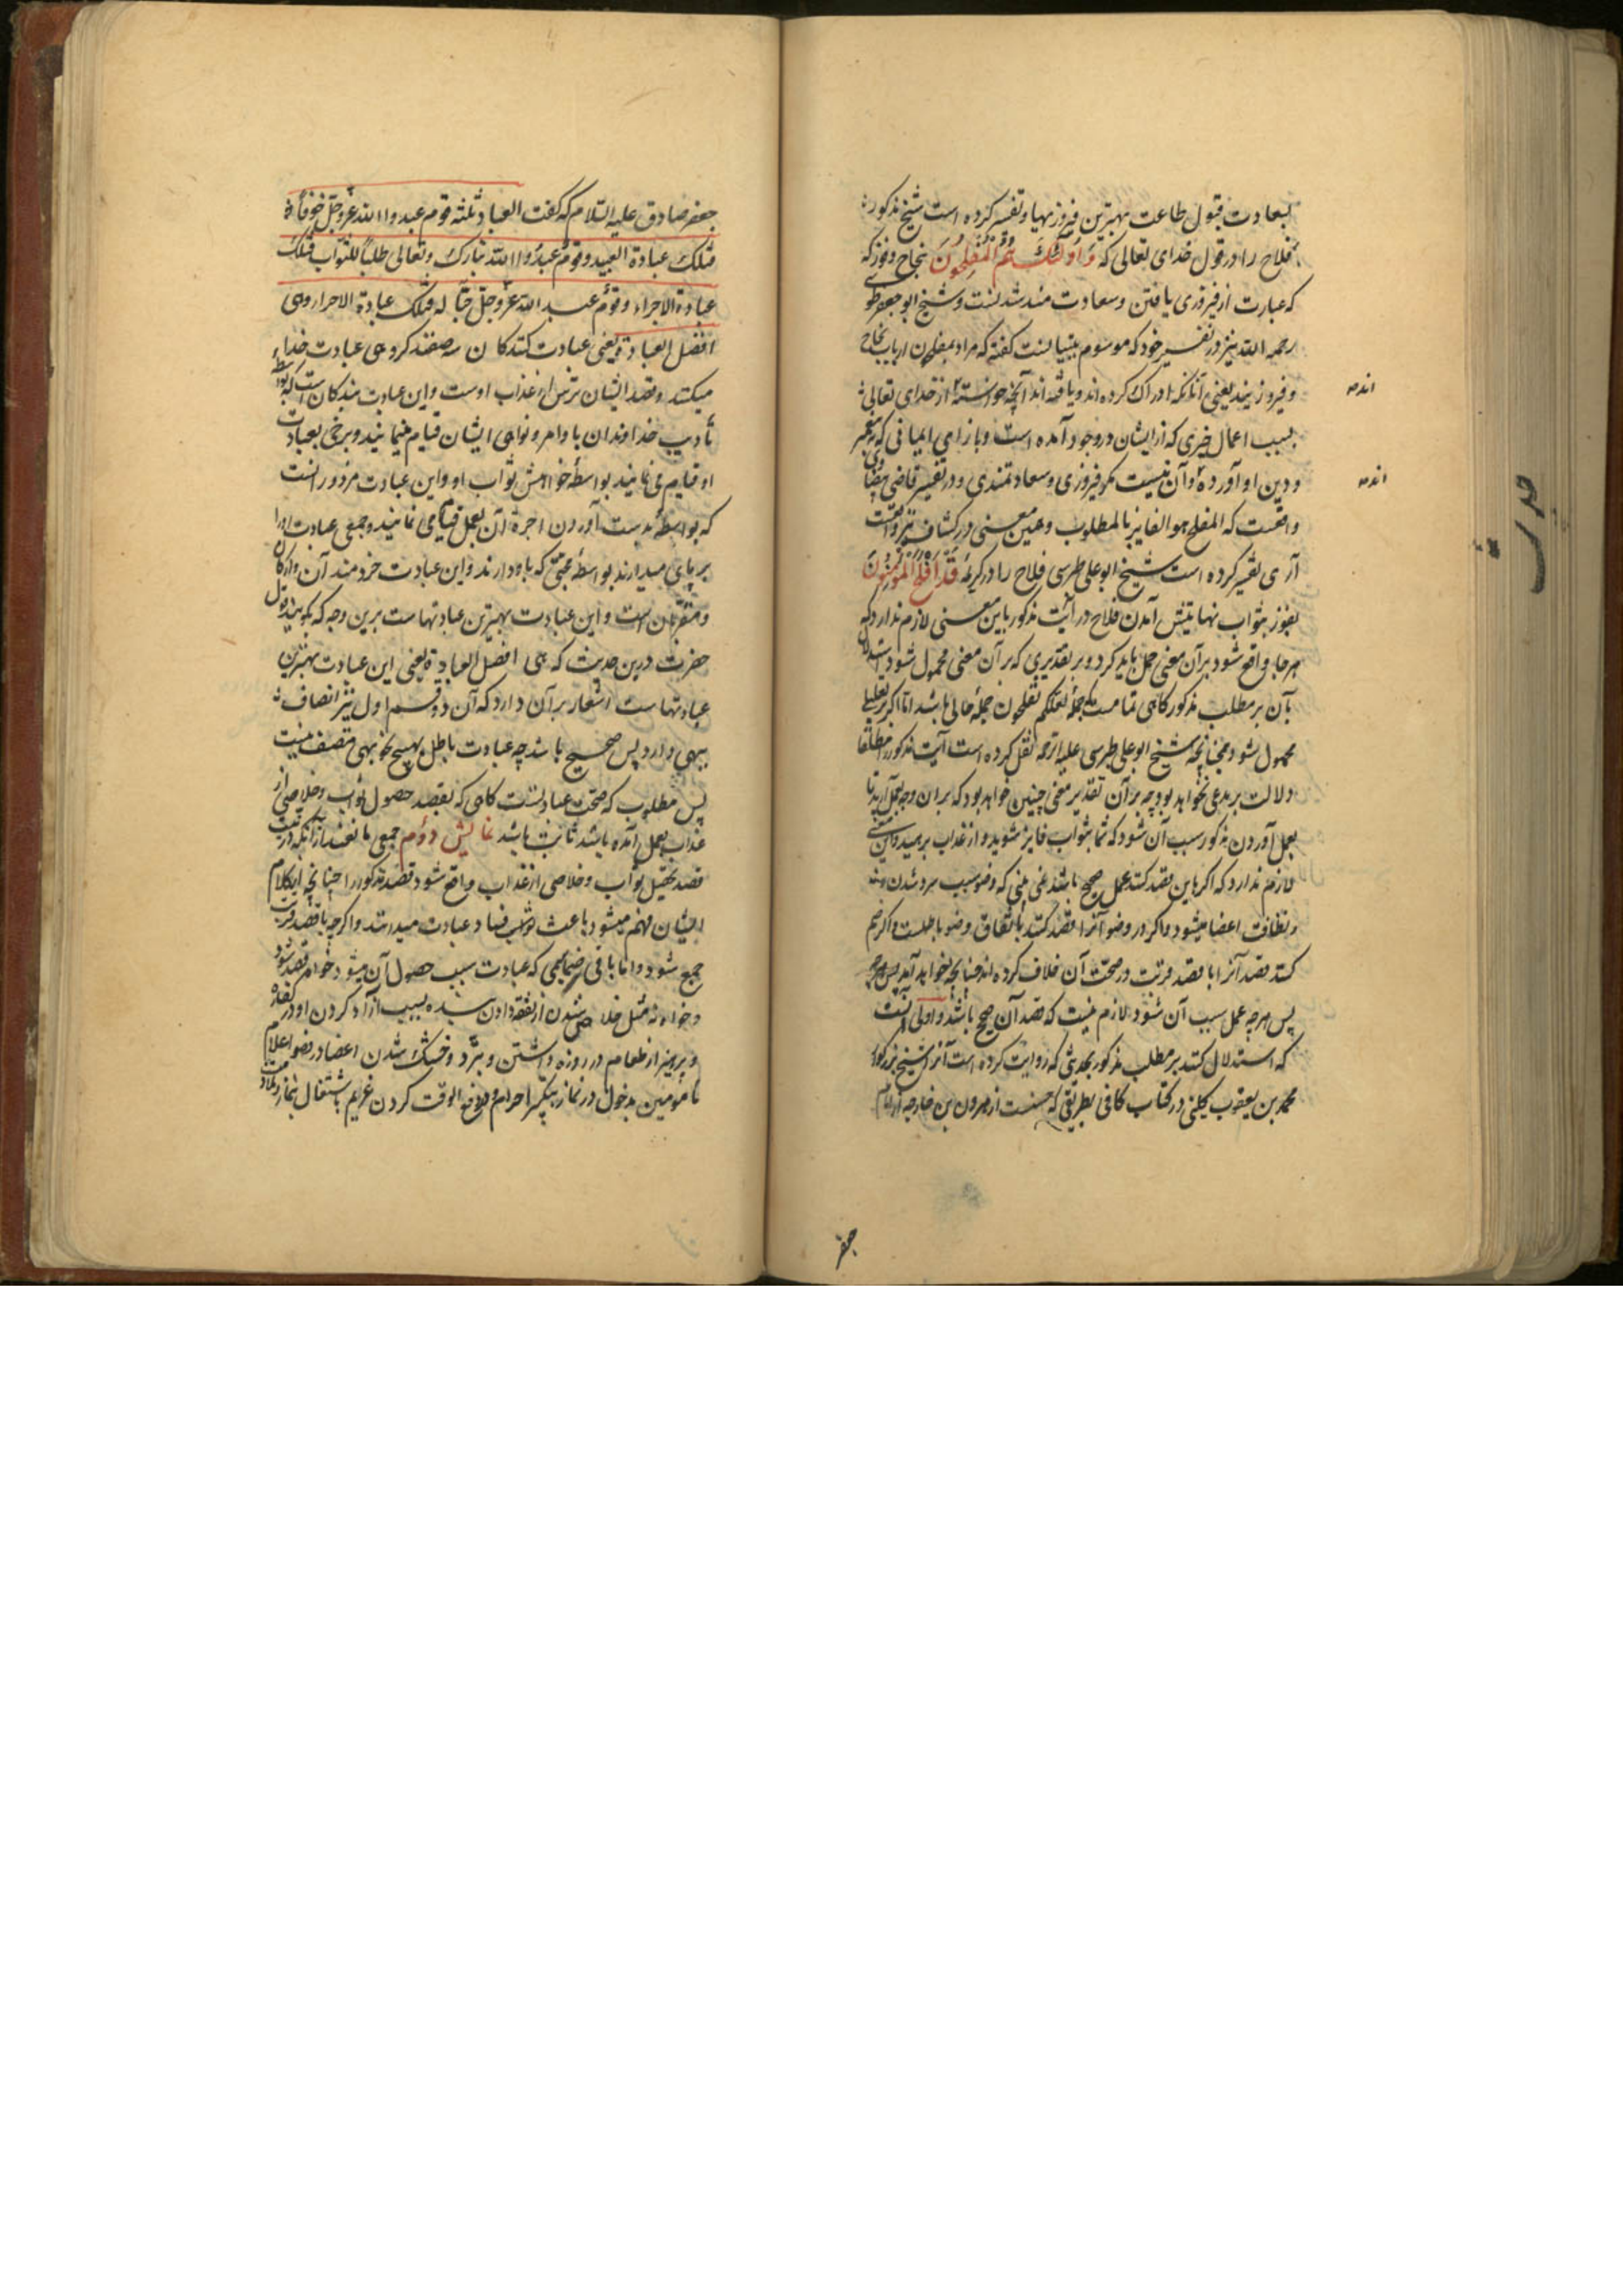 بسعادت قبول طاعت بهترین فیروزیها و تفسیر کرده است شیخ مذکور
فلاح را در قول خدای تعالی که وَ اُولئِکَ هُمُ الْمُفْلِحُونَ بنجاح و فوز که
که عبارت از فیروزی یافتن و سعادت مند شدنست و شیخ ابو جعفر طوسی
رحمه الله نیز در تفسیر خود که موسوم بتبیانست گفته که مراد بمفلحون ارباب نجاح
و فیروزیند یعنی آنانکه ادراک کرده اند و یافته اند آنچه خواسته اند از خدای تعالی
بسبب اعمال خیری که از ایشان در وجود آمده است و بازای ایمانی که به پیغمبر
و دین او آورده و آن نیست مکر فیروزی و سعادتمندی و در تفسیر قاضی بیضاوی
واقعست که المفلح هو الفایز بالمطلوب و همین معنی در کشاف نیز واقعست
آری تفسیر کرده است شیخ ابو علی طبرسی فلاح را در کریمهٔ قَدْ اَفْلَحَ الْمُؤْمِنُونَ
بفوز بثواب نهایتش آمدن فلاح در آیت مذکور باین معنی لازم ندارد که
هر جا واقع شود بر آن معنی حمل باید کرد و بر تقدیری که بر آن معنی محمول شود استدلال
بآن بر مطلب مذکور کاهی تمامست که جملهٔ لعلکم تفلحون جملهٔ حالی باشد اما اکر بر تعلیل
محمول شود چنانچه شیخ ابو علی طبرسی علیه الرحمه نقل کرده است آیت مذکور مطلقا
دلالت بر مدعی نخواهد بود چه بر آن تقدیر معنی چنین خواهد بود که بر آن وجه بعمل آرید تا
بعمل آوردن مذکور سبب آن شود که شما بثواب فایز شوید و از عذاب برهید و این معنی
لازم ندارد که اکر باین قصد کنند عمل صحیح باشد نمی بینی که وضو سبب سرد شدن
و نظافت اعضا میشود و اکر در وضو آنرا قصد کنند باتفاق وضو باطلست و اکر ضم
کنند قصد آنرا با قصد قربت در صحت آن خلاف کرده اند چنانچه خواهد آمد پس هر چه
پس هر چه عمل سبب آن شود لازم نیست که قصد آن صحیح باشد و اولی آنست
که استدلال کنند بر مطلب مذکور بحدیثی که روایت کرده است آنرا شیخ بزرکوار
محمد بن یعقوب کلینی در کتاب کافی بطریقی که حسنست از هرون بن خارجه از امام
اندمه
اندمه
جعفر
جعفر صادق علیه السلام که کفت العباد ثلثه قوم عبدوا الله عز و جل خوفا
فتلک عبادة العبید و قوم عبدوا الله تبارک و تعالی طلبا للثواب فتلک
عبادة الاجراء و قوم عبدوا الله عز و جل حبا له فتلک عبادة الاحرار و هی
افضل العبادة یعنی عبادت کنندکان سه صفند کروهی عبادت خدای
میکنند و قصد ایشان ترس از عذاب اوست و این عبادت بندکان است که بواسطهٔ
تأدیب خداوندان باوامر و نواهی ایشان قیام مینمایند و برخی بعبادت
او قیام می نمایند بواسطهٔ خواهش ثواب او و این عبادت مزدورانست
که بواسطهٔ بدست آوردن اجرت آن بعمل قیام می نمایند و جمعی عبادت او را
بر پای میدارند بواسطهٔ محبتی که باو دارند و این عبادت خردمندان و ازادکان
و مقربان است و این عبادت بهترین عبادتهاست برین وجه که بکویند قول
حضرت درین حدیث که هی افضل العبادة یعنی این عبادت بهترین
عبادتهاست اشعار بر آن دارد که آن دو قسم اول نیز اتصاف
ببهی دارد پس صحیح باشد چه عبادت باطل بهیچ نحو ببهی متصف نیست
پس مطلوب که صحت عبادتست کاهی که بقصد حصول ثواب و خلاصی از
عذاب بعمل آمده باشد ثابت باشد نمایش دوم جمعی مانعند از آنکه در نیت
قصد تحصیل ثواب و خلاصی از عذاب واقع شود قصد مذکور را چنانچه از کلام
ایشان فهم میشود باعث فساد عبادت میدانند و اکر چه با قصد قربت
جمع شود و اما باقی ضمایمی که عبادت سبب حصول آن میشود خواه قصد شود
و خواه نه مثل خلاص شدن از نفقه دادن بنده بسبب آزاد کردن او در کفاره
و پرهیز از طعام در روزه داشتن و تبرد و خنک شدن اعضا در وضو و اعلام
مأمومین بدخول در نماز بتکبیر احرام و دفع الوقت کردن غریم باشتغال بنماز